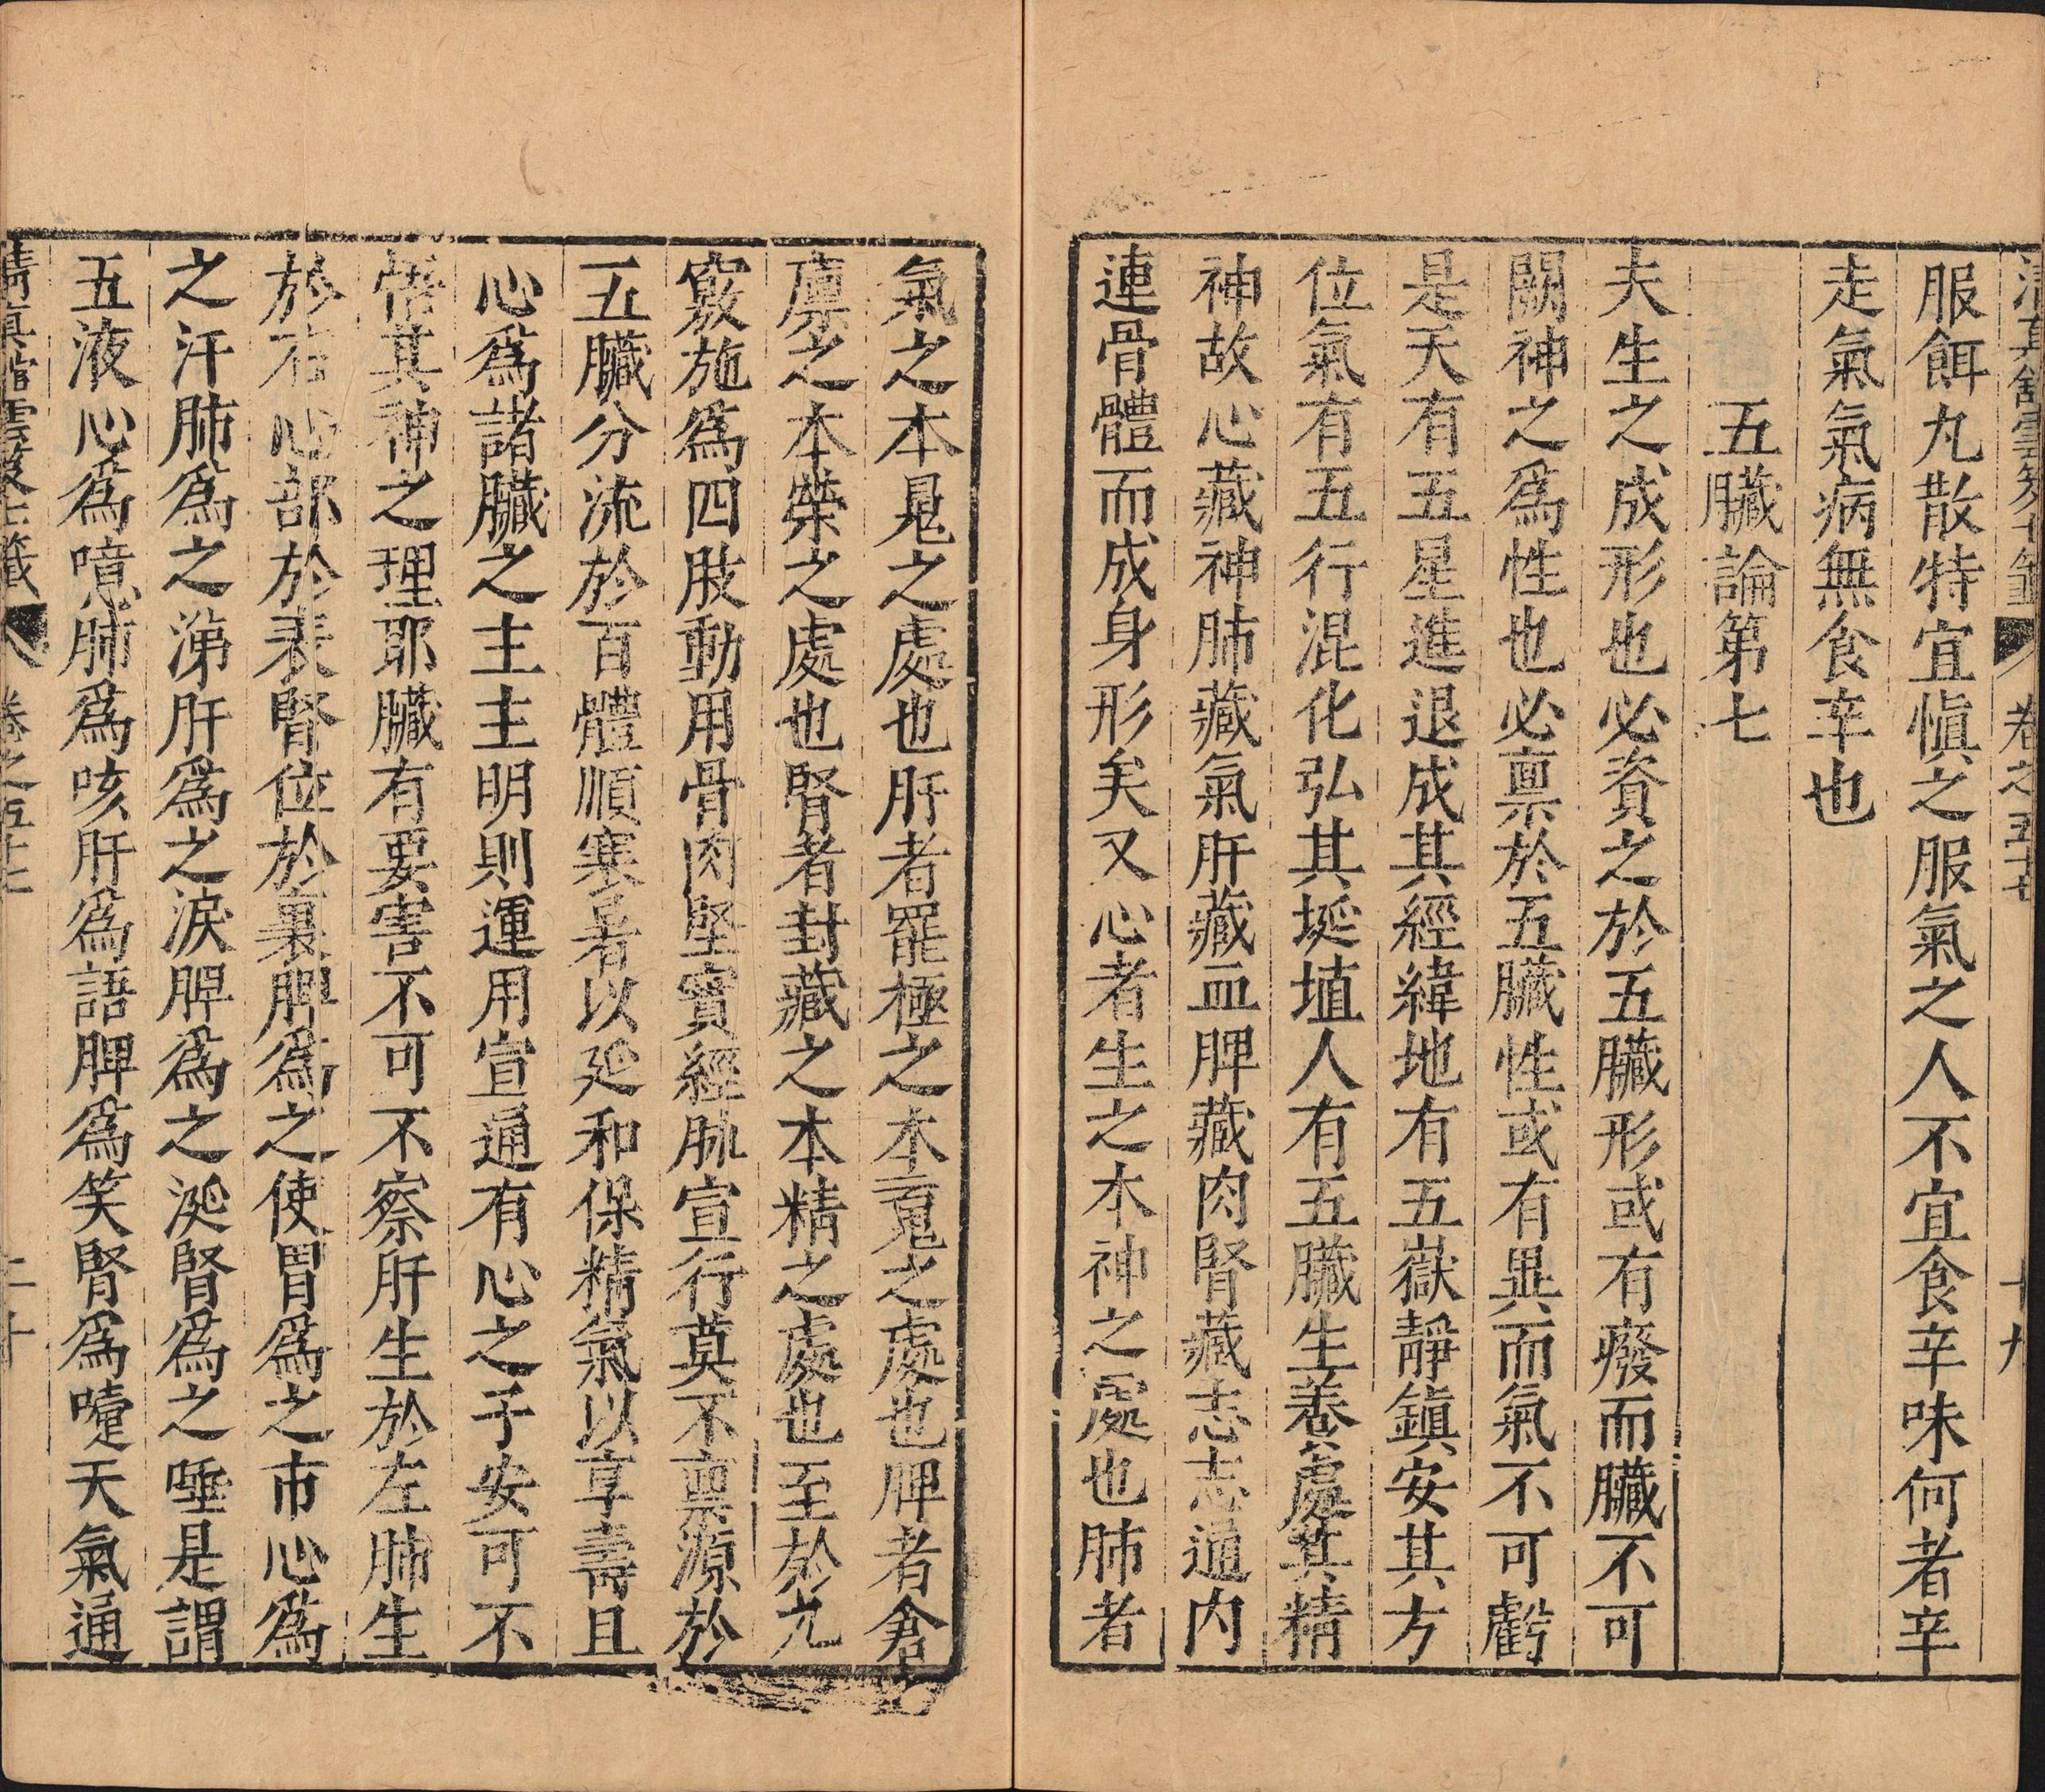 清真舘雲笈七籖 卷之五十七 十九
服餌丸散特宜愼之服氣之人不宜食辛味何者辛
走氣氣病無食辛也
五臟論第七
夫生之成形也必資之於五臟形或有廢而臟不可
闕神之爲性也必禀於五臟性或有異而氣不可虧
是天有五星進退成其經緯地有五嶽靜鎮安其方
位氣有五行混化弘其埏埴人有五臟生養處其精
神故心藏神肺藏氣肝藏血脾藏肉腎藏志志通內
連骨體而成身形矣又心者生之本神之處也肺者
氣之本䰟之處也肝者罷極之本䰟之處也脾者倉
廪之本榮之處也腎者封藏之本精之處也至於九
竅施爲四肢動用骨肉堅實經脉宣行莫不禀源於
五臟分流於百體順寒暑以延和保精氣以享壽且
心爲諸臟之主主明則運用宣通有心之子安可不
悟其神之理耶臟有要害不可不察肝生於左肺生
於右心部於表腎位於裏脾爲之使胃爲之市心爲
之汗肺爲之涕肝爲之淚脾爲之涎腎爲之唾是謂
五液心爲噫肺爲咳肝爲語脾爲笑腎爲嚔天氣通
清真舘雲笈七籖 卷之五十七 二十